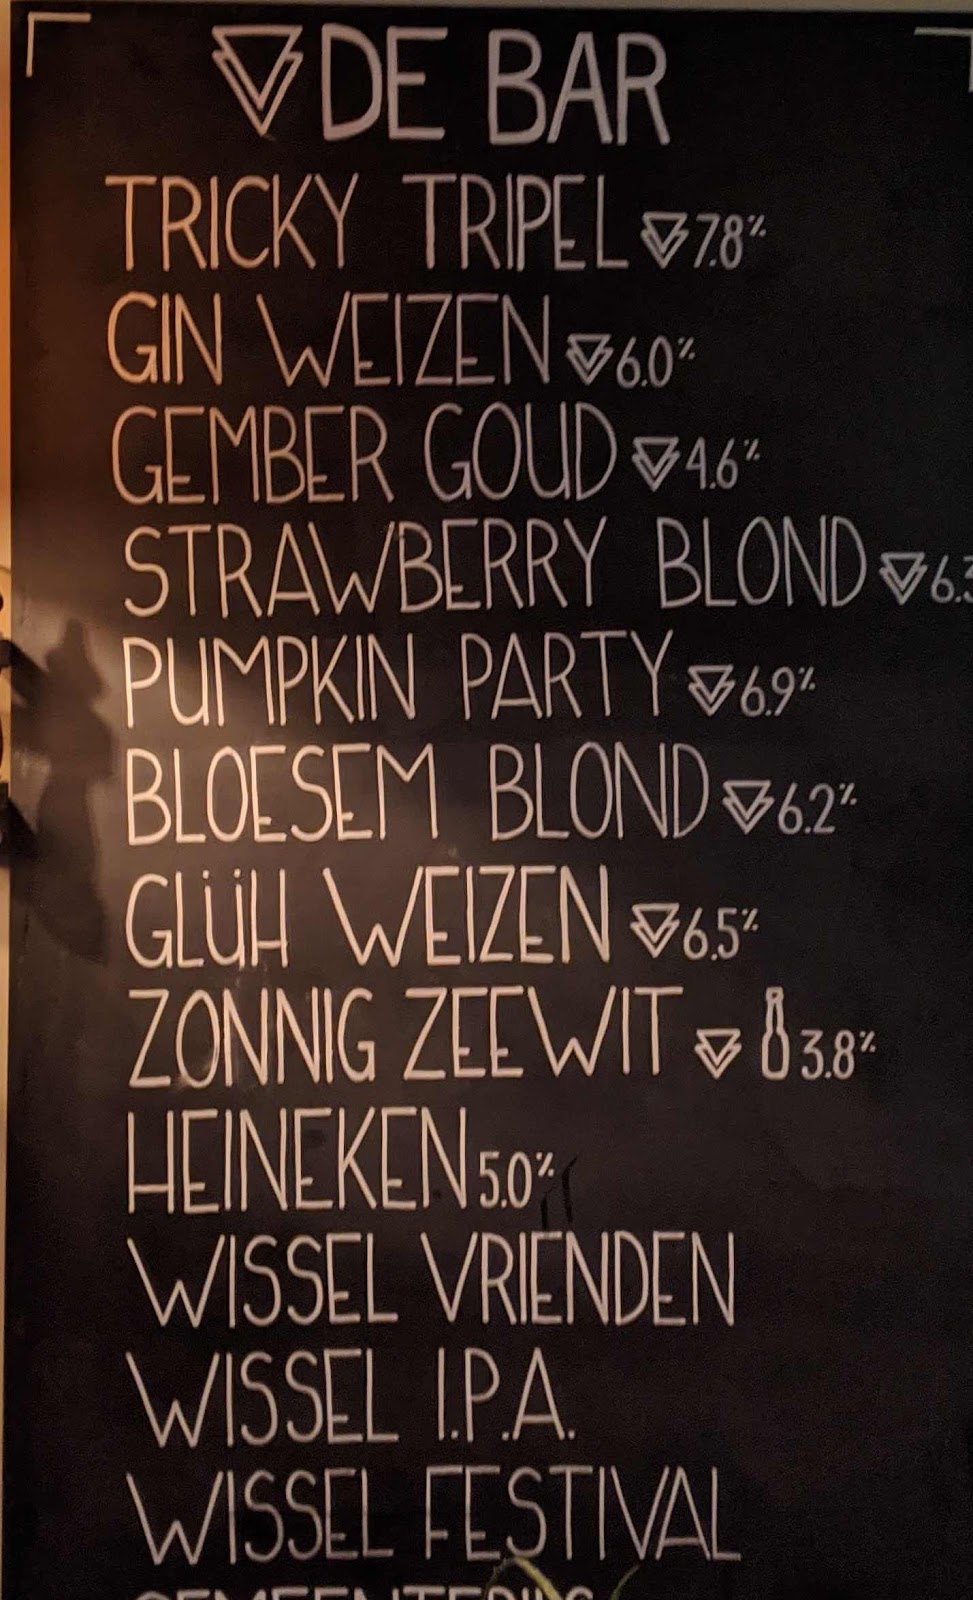 DE BAR
TRICKY TRIPEL 7.8%
GIN WEIZEN 6.0%
GEMBER GOUD 4.6%
STRAWBERRY BLOND 6.3
PUMPKIN PARTY 6.9%
BLOESEM BLOND 6.2%
GLÜH WEIZEN 6.5%
ZONNIG ZEEWIT 3.8%
HEINEKEN 5.0%
WISSEL VRIENDEN
WISSEL I.P.A.
WISSEL FESTIVAL